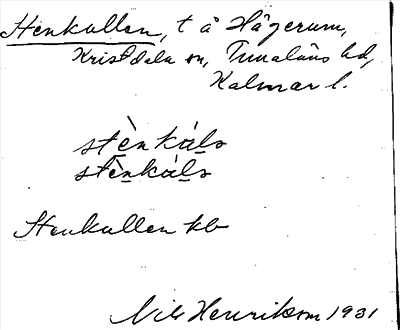 Stenkullen, t å Hägerum,
Kristdala sn, Tunaläns hd,
Kalmar l.
stènkálo
stènkálo
Stenkullen kb
Nils Henrikson 1931